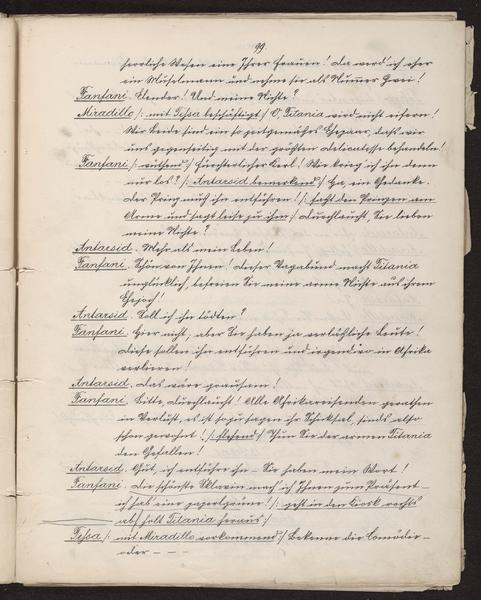 99
herrliche Wesen eine Ihrer Frauen! Da werd' ich eher
ein Muselmann und nehme sie als Nummer Zwei!
Fanfani. Elender! Und meine Nichte?
Miradillo /: mit Tessa beschäftigt :/ O, Titania wird nicht eifern!
Wir beide sind ein so zeitgemäßes Ehepaar, daß wir
uns gegenseitig mit der größten Delicatesse behandeln!
Fanfani /: wüthend :/ Fürchterlicher Kerl! Wie krieg' ich ihn denn
nur los? /: Antarsid bemerkend :/ Ha, ein Gedanke.
Der Prinz muß ihn entführen! /: faßt den Prinzen am
Arme und sagt leise zu ihm :/ Durchlaucht, Sie lieben
meine Nichte?
Antarsid. Mehr als mein Leben!
Fanfani. Schön von Ihnen! Dieser Vagabund macht Titania
unglücklich, befreien Sie meine arme Nichte aus ihrem
Ehejoch!
Antarsid. Soll ich ihn tödten?
Fanfani. Hier nicht, aber Sie haben ja verläßliche Leute!
Diese sollen ihn entführen und irgendwo in Afrika
verlieren!
Antarsid. Das wäre grausam!
Fanfani. Bitte, Durchlaucht! Alle Afrikareisenden gerathen
in Verlust, es ist sozusagen ihr Schicksal, sind's also
schon gewohnt! /: flehend :/ Thun Sie der armen Titania
den Gefallen!
Antarsid. Gut, ich entführe ihn – Sie haben mein Wort!
Fanfani. Die schönste Sklavin mach ich Ihnen zum Präsent –
ich hab' eine /: geht in den Kiosk rechts
ab, holt Titania heraus :/
Tessa /: mit Miradillo vorkommend :/ Bekenne die Comödie –
oder – – –